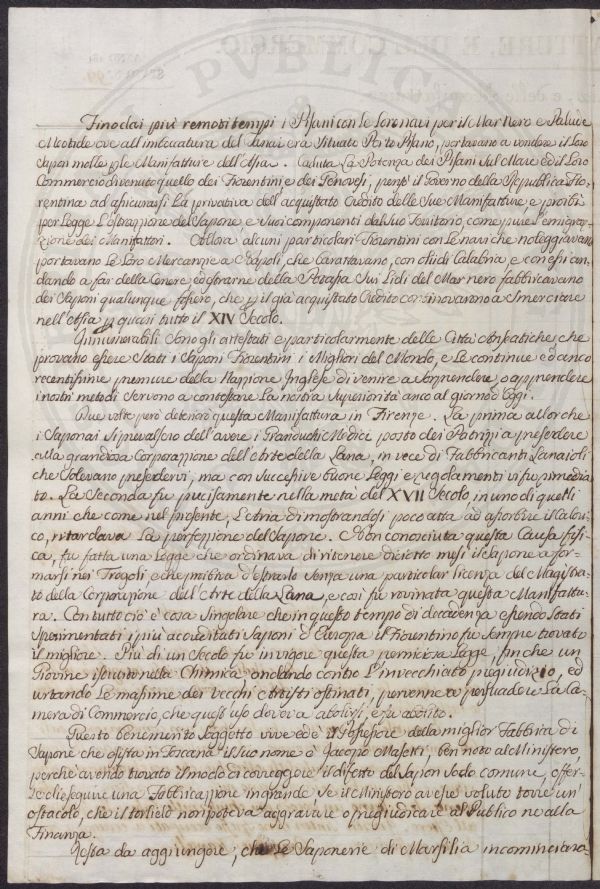 Fino dai più remoti tempi i Pisani con le loro navi per il Mar Nero e Palude
Meotide ove all'imboccatura del Tanai era situato Porto Pisano, portavano a vendere il loro
Sapon molla, ed le Manifatture dell'Asia. Caduta La Potenza dei Pisani sul Mare ed il Loro
Commercio divenuto quello dei Fiorentini e dei Genovesi, pensò il Governo della Repubblica Fio-
rentina ad assicurarsi La privativa dell'acquistato Credito delle Sue Manifatture, e proibì
per Legge L'estrazione del Sapone, e suoi componenti dal suo Territorio, come pure l'emigra-
zione dei Manifattori. Allora alcuni particolari Fiorentini con Le navi che noleggiavano
portavano Le Loro Mercanzie a Napoli, che barattavano, con olii di Calabria, e con essi an-
dando a far della Cenere, ed estrarne della Potassa Sui Lidi del Mar nero fabbricavano
dei Saponi qualunque fossero, che p il già acquistato Credito continovarono a Smerciare
nell'Asia p quasi tutto il XIV Secolo.
Innumerabili Sono gli attestati e particolarmente delle Città Anseatiche, che
provano essere Stati i Saponi Fiorentini i Migliori del Mondo, e Le continue ed anco
recentissime premure della Nazzione Inglese di venire a Sorprendere, o apprendere
i nostri metodi Servono a contestare La nostra Superiorità anco al giorno d'oggi.
Due volte però deteriorò questa Manifattura in Firenze. La prima allor che
i Saponai Si prevalsero dell'avere i Granduchi Medici posto dei Patrizi a presedere
alla grandiosa Corporazione dell'Arte della Lana, in vece di Fabbricanti Lanaioli
che Solevano presedervi, ma con Successive buone Leggi e regolamenti vi fu rimedia-
to. La Seconda fu precisamente nella metà del XVII Secolo, in uno di quelli
anni che come nel presente, L'Atria dimostrandosi poco atta ad assorbire il Calori-
co, ritardava La perfezzione del Sapone. Non conosciuta questa Causa fisi-
ca, fu fatta una Legge che ordinava di ritenere diciotto mesi il Sapone a for-
marsi nei Trogoli e che proibiva d'estrarlo Senza una particolar licenza del Magistra-
to della Corporazione dell'Arte della Lana, e così fu rovinata questa Manifattu-
ra. Con tutto ciò è cosa Singolare che in questo tempo di decadenza essendo Stati
Sperimentati i più accreditati Saponi d'Europa il Fiorentino fu Sempre trovato
il migliore. Più di un Secolo fu in vigore questa perniciosa Legge, fin che un
Giovine istruito nella Chimica andando contro L'invecchiato pregiudizio, ed
urtando Le massime dei vecchi Artisti ostinati, pervenne a persuadere La Ca-
mera di Commercio, che quest'uso doveva abolirsi, e fu abolito.
Questo benemerito Soggetto vive ed è il possessore della miglior Fabbrica di
Sapone che esista in Toscana il Suo nome è Jacopo Masetti, ben noto al Ministero,
perchè avendo trovato il modo di correggere il difetto del Sapon Sodo comune, offer-
se di eseguire una Fabbricazzione in grande, Se il Ministero avesse voluto torre un'
ostacolo, che il torlielo non poteva aggravare o pregiudicare al Pubblico ne alla
Finanza.
Resta da aggiungere, che Le Saponerie di Marsilia incomincia-